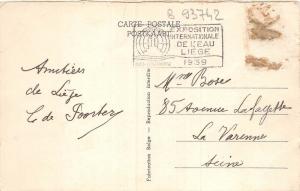 B 93742
CARTE POSTALE
POSTKAART
EXPOSITION
INTERNATIONALE
DE L'EAU
LIÈGE
1939
Amitiés
de Liège
Mme Bose
85 Avenue Lafayette
La Varenne
Seine
Fabrication Belge - Reproduction interdite